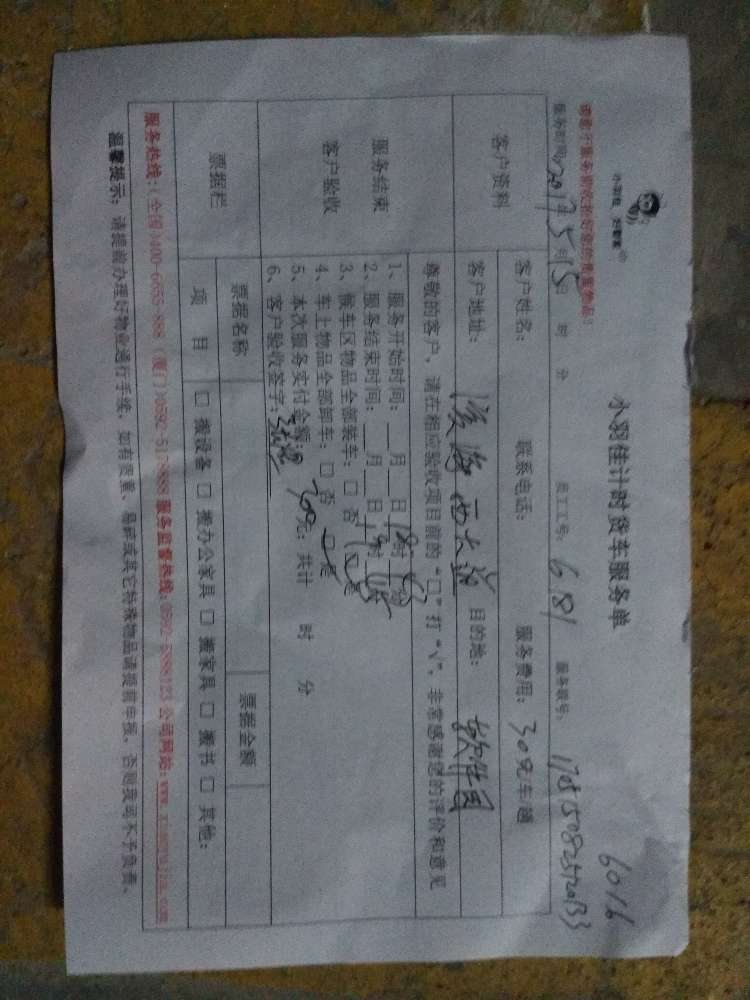 6016
小羽佳计时货车服务单
小羽佳 好管家
请客户服务前收拾好您的贵重物品！
服务时间：2017年5月15日 时 分 员工工号：681 服务账号：
客户资料
客户姓名： 联系电话： 服务费用：30元/车趟
客户地址：滨海西大道 目的地：软件园
服务结束
客户验收
尊敬的客户，请在相应验收项目前的“□”打“√”，非常感谢您的评价和意见
1、服务开始时间：__月__日18时
2、服务结束时间：__月__日19时
3、候车区物品全部装车：□否 □是
4、车上物品全部卸车：□否 □是
5、本次服务实付金额：300元；共计 时 分
6、客户验收签字：
票据栏
票据名称 票据金额
项目 □搬设备 □搬办公家具 □搬家具 □搬书 □其他：
服务热线：（全国）400-6655-888（厦门）0592-5178888 服务监督热线：0592-5888123 公司网站：www.xiaoyujia.com
温馨提示：请提前办理好物业通行手续，如有贵重、易碎或其它特殊物品请提前申报，否则我司不予负责。